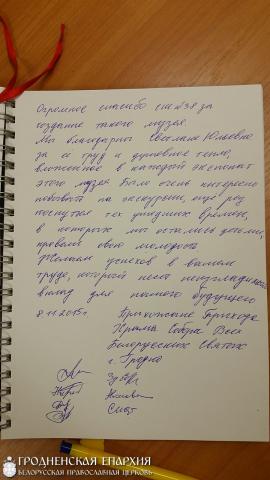 Огромное спасибо сш №38 за
создание такого музея.
Мы благодарны Светлане Юльевне
за ее труд и душевное тепло,
вложенное в каждый экспонат
этого музея. Было очень интересно
побывать на экскурсии, еще раз
коснуться тех ушедших времен,
в которых мы остались детьми,
провели свою молодость.
Желаем успехов в вашем
труде, который несет неизгладимый
вклад для нашего будущего
8.11.2015г. Прихожане Прихода
Храма Собора Всех
Белорусских Святых
г. Гродно
ГРОДНЕНСКАЯ ЕПАРХИЯ
БЕЛОРУССКАЯ ПРАВОСЛАВНАЯ ЦЕРКОВЬ